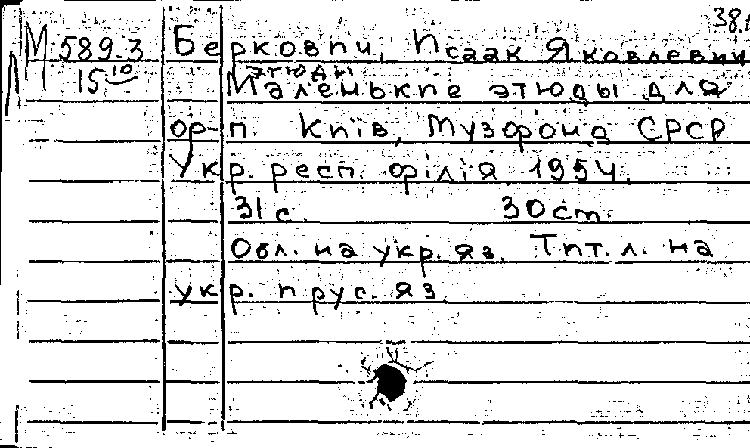 38.
М 589.3 Беркович, Исаак Яковлевич
этюды
15 10 Маленькие этюды для
ф-п. Київ, Музфонд СРСР
Укр. респ. філія 1954.
31 с. 30 cm.
Обл. на укр. яз. Тит. л. на
укр. и рус. яз.